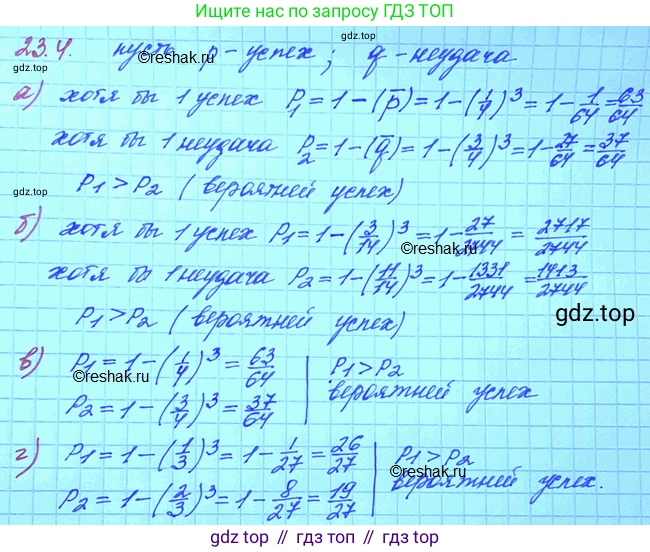 Ищите нас по запросу ГДЗ ТОП
23.4. пусть p - успех ; q - неудача
gdz.top
©reshak.ru
gdz.top
а) хотя бы 1 успех P₁ = 1 - (p̅) = 1 - (1/4)³ = 1 - 1/64 = 63/64
хотя бы 1 неудача P₂ = 1 - (q̅) = 1 - (3/4)³ = 1 - 27/64 = 37/64
P₁ > P₂ ( вероятней успех)
б) хотя бы 1 успех P₁ = 1 - (3/14)³ = 1 - 27/2744 = 2717/2744
©reshak.ru
хотя бы 1 неудача P₂ = 1 - (11/14)³ = 1 - 1331/2744 = 1413/2744
P₁ > P₂ ( вероятней успех)
gdz.top
в) P₁ = 1 - (1/4)³ = 63/64 | P₁ > P₂
©reshak.ru
P₂ = 1 - (3/4)³ = 37/64 | вероятней успех
г) P₁ = 1 - (1/3)³ = 1 - 1/27 = 26/27 | P₁ > P₂
©reshak.ru
P₂ = 1 - (2/3)³ = 1 - 8/27 = 19/27 | вероятней успех.
gdz top // гдз топ // gdz.top